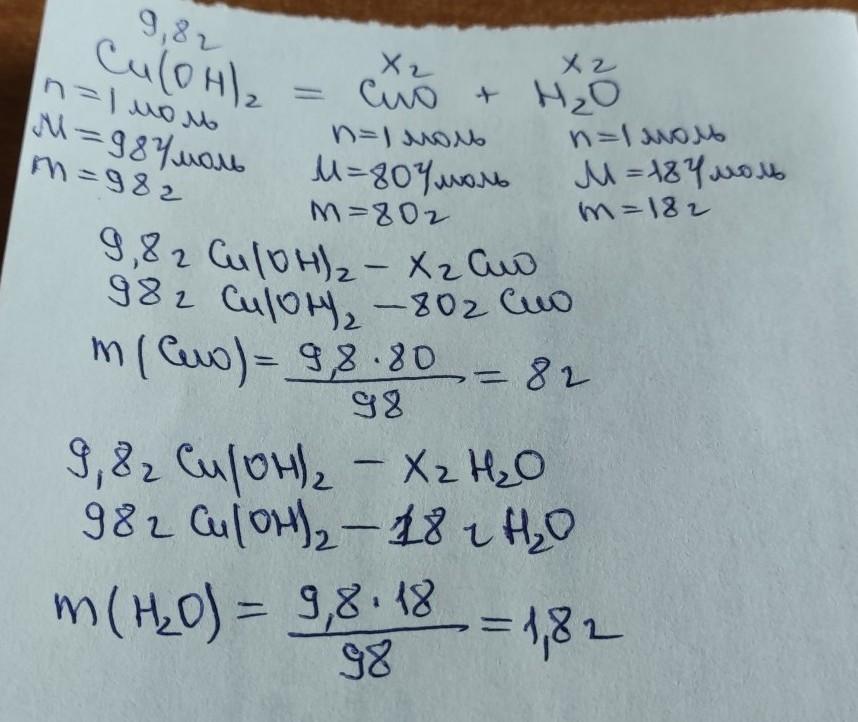 9,8г
Cu(OH)₂ = CuO + H₂O
xг xг
n=1моль n=1моль n=1моль
M=98г/моль M=80г/моль M=18г/моль
m=98г m=80г m=18г
9,8г Cu(OH)₂ – xг CuO
98г Cu(OH)₂ – 80г CuO
m(CuO) = 9,8·80/98 = 8г
9,8г Cu(OH)₂ – xг H₂O
98г Cu(OH)₂ – 18г H₂O
m(H₂O) = 9,8·18/98 = 1,8г